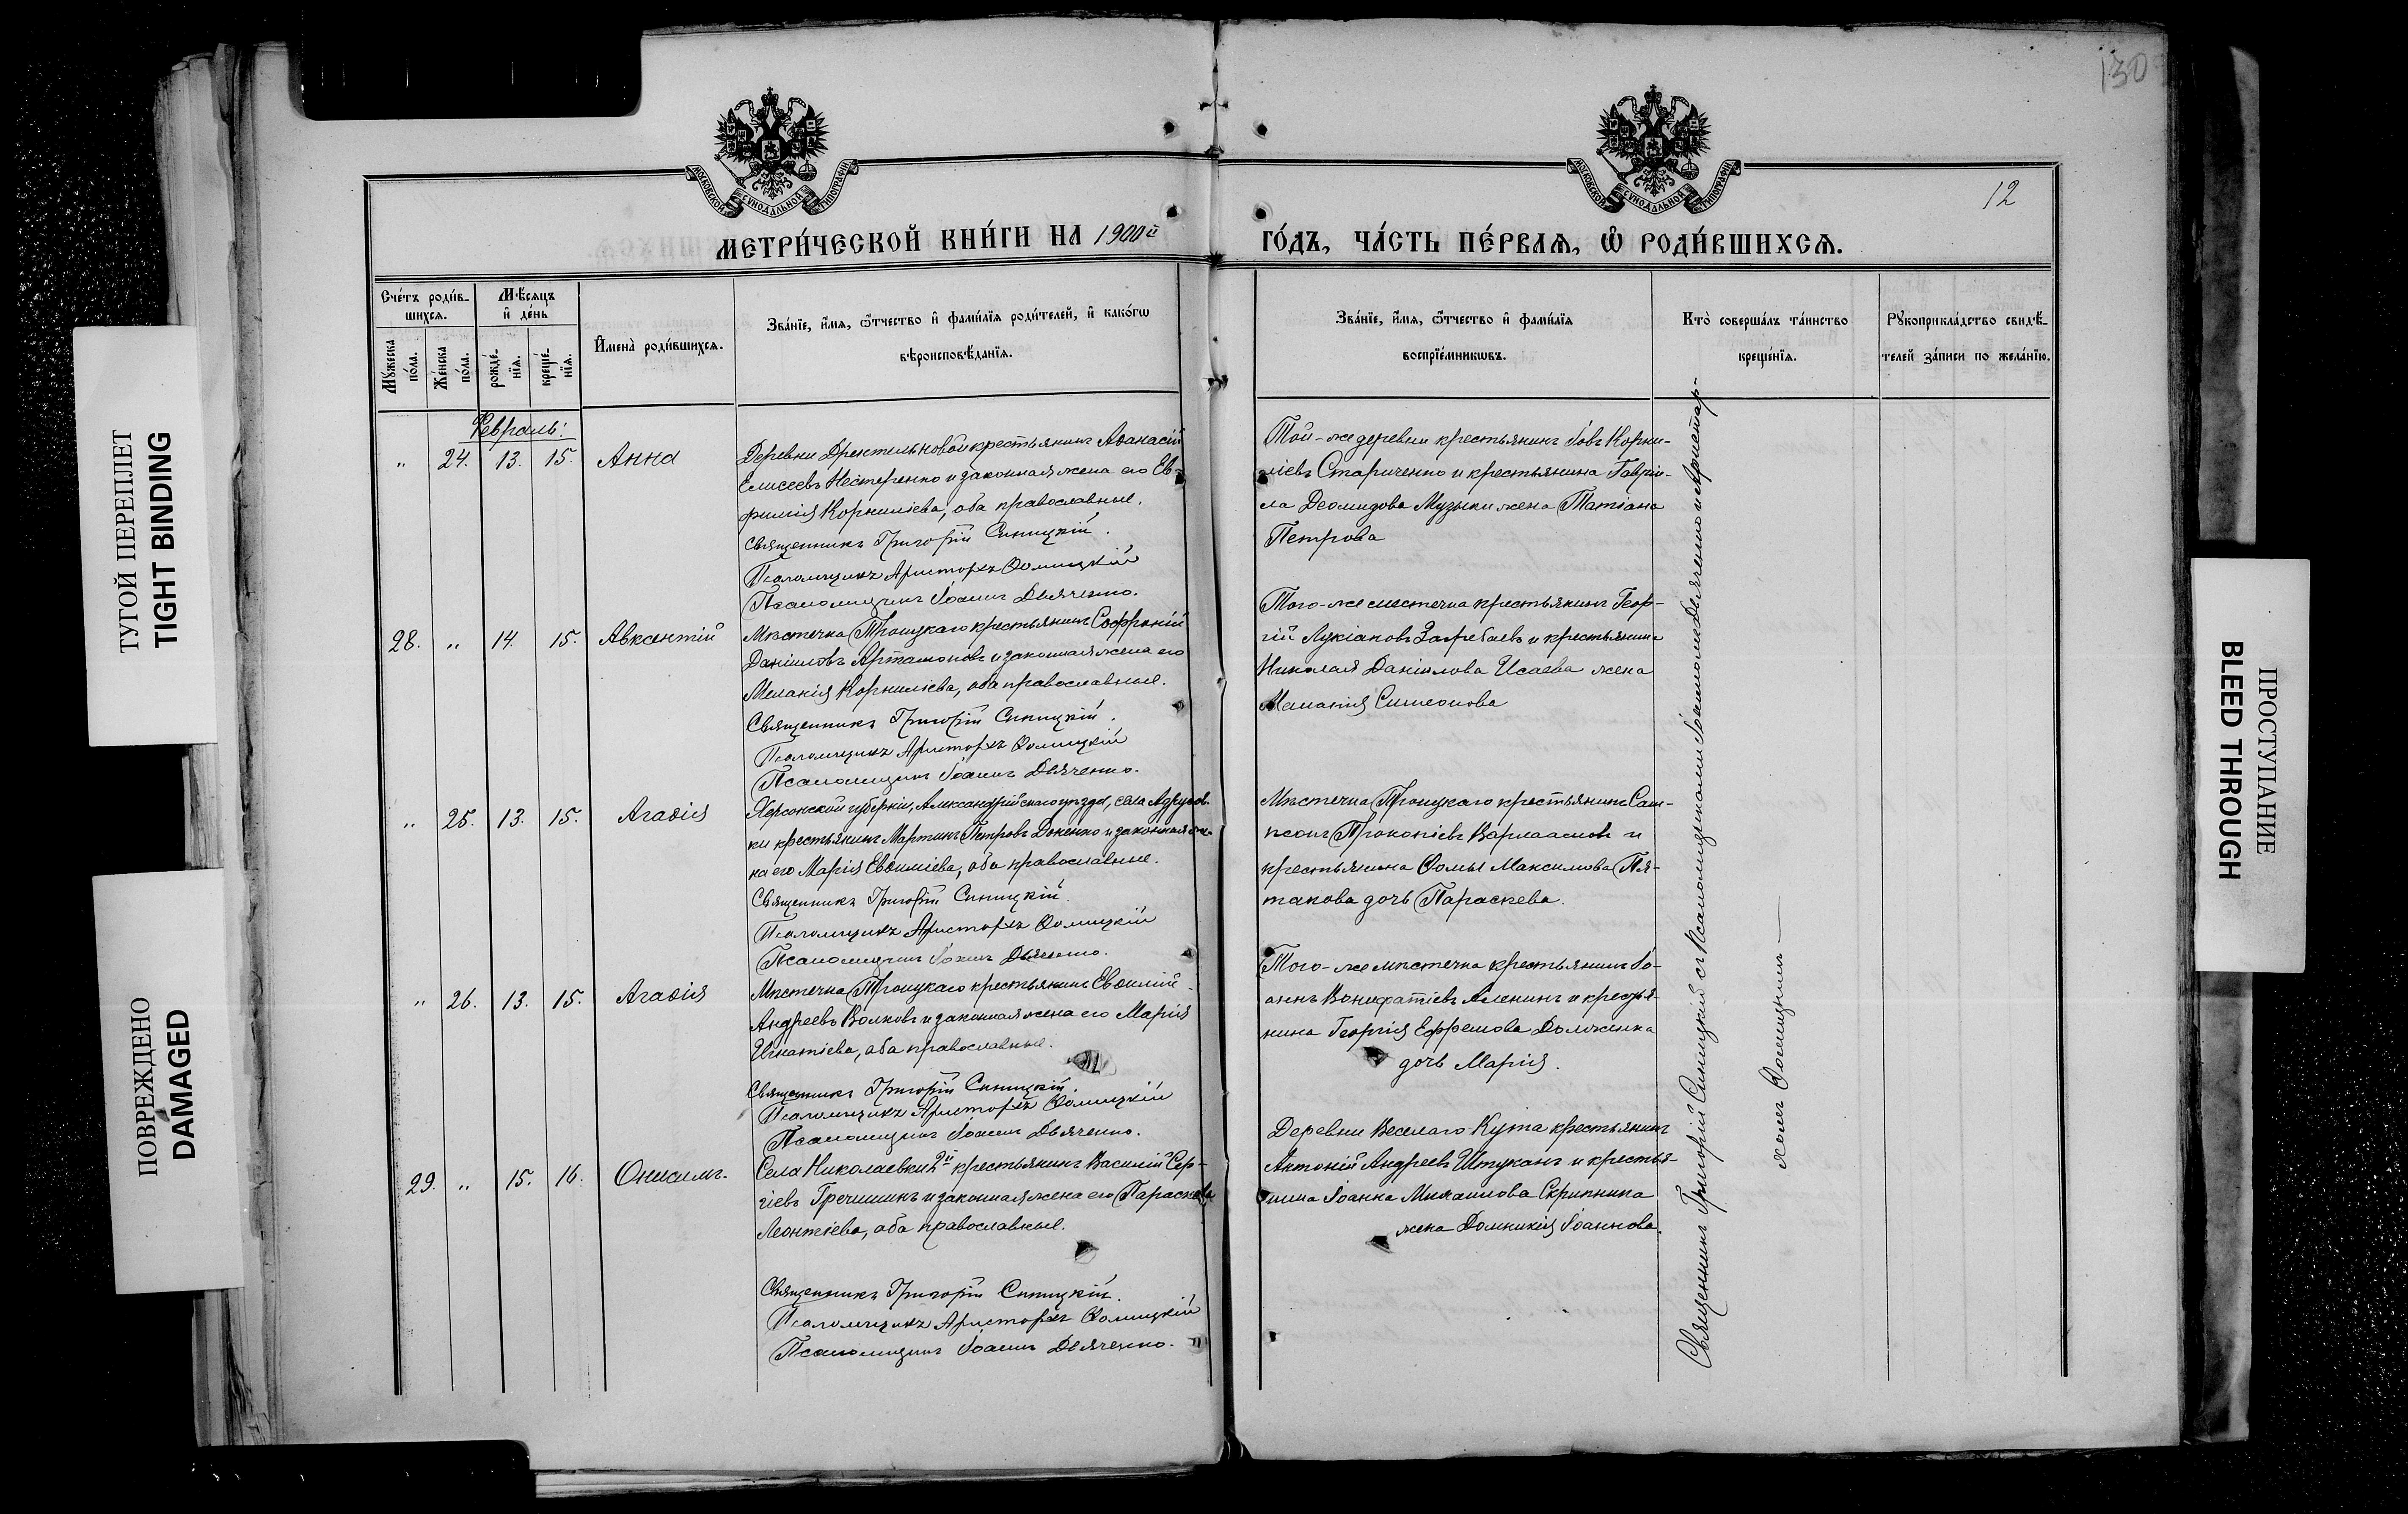 130
12
МОСКОВСКОЙ СѴНОДАЛЬНОЙ ТИПОГРАФІИ
МОСКОВСКОЙ СѴНОДАЛЬНОЙ ТИПОГРАФІИ
МЕТРИ́ЧЕСКОЙ КНИ́ГИ НА 1900й
ГО́ДЪ, ЧА́СТЬ ПЕ́РВАѦ, Ѡ҆ РОДИ́ВШИХСѦ.
Сче́тъ роди́в-
шихсѧ.
Мꙋ́жеска по́ла.
Же́нска по́ла.
Мѣ́сѧцъ
и҆ де́нь
рожде́-
нїѧ.
креще́-
нїѧ.
И҆мена̀ роди́вшихсѧ.
Зва́нїе, и҆́мѧ, ѻ҆́тчество и҆ фами́лїѧ роди́телей, и҆ како́гѡ
вѣроисповѣ́данїѧ.
Зва́нїе, и҆́мѧ, ѻ҆́тчество и҆ фами́лїѧ
воспрїе́мникѡвъ.
Кто̀ соверша́лъ та́инство
креще́нїѧ.
Рꙋкоприкла́дство свидѣ́-
телей за́писи по жела́нїю.
Февраль:
" 24. 13. 15. Анна
Деревни Дрентельновой крестьянинъ Аѳанасій
Елисеевъ Нестеренко и законная жена его Ев-
фимія Корниліева, оба православные.
Священникъ Григорій Синицкій.
Псаломщикъ Аристархъ Ѳомицкій
Псаломщикъ Іоаннъ Дьяченко.
Той-же деревни крестьянинъ Іовъ Корни-
ліевъ Стариченко и крестьянина Гаврі-
ла Деомидова Музыки жена Татіана
Петрова
28. " 14. 15. Авксентій
Мѣстечка Троицкаго крестьянинъ Софроній
Даніиловъ Артамоновъ и законная жена его
Меланія Корниліева, оба православные.
Священникъ Григорій Синицкій.
Псаломщикъ Аристархъ Ѳомицкій
Псаломщикъ Іоаннъ Дьяченко.
Того-же местечка крестьянинъ Геор-
гій Лукіановъ Загребаевъ и крестьянина
Николая Даніилова Исаева жена
Меланія Симеонова
" 25. 13. 15. Агаѳія
Херсонской губерніи, Александрійскаго уѣзда, села
ки крестьянинъ Мартинъ Петровъ Доненко и законная же-
на его Марія Евѳиміева, оба православные.
Священникъ Григорій Синицкій.
Псаломщикъ Аристархъ Ѳомицкій
Псаломщикъ Іоаннъ Дьяченко.
Мѣстечка Троицкаго крестьянинъ Сам-
псонъ Прокопіевъ Варлаамовъ и
крестьянина Ѳомы Максимова Пя-
такова дочь Параскева.
" 26. 13. 15. Агаѳія
Мѣстечка Троицкаго крестьянинъ Евѳимій
Андреевъ Волковъ и законная жена его Марія
Игнатіева, оба православные.
Священникъ Григорій Синицкій.
Псаломщикъ Аристархъ Ѳомицкій
Псаломщикъ Іоаннъ Дьяченко.
Того-же мѣстечка крестьянинъ Іо-
аннъ Вонифатіевъ Аленинъ и крестья-
нина Георгія Ефремова Долженка
дочь Марія.
29. " 15. 16. Онисимъ.
Села Николаевки 2й крестьянинъ Василій Сер-
гіевъ Гречишинъ и законная жена его Параскева
Леонтіева, оба православные.
Священникъ Григорій Синицкій.
Псаломщикъ Аристархъ Ѳомицкій
Псаломщикъ Іоаннъ Дьяченко.
Деревни Веселаго Кута крестьянинъ
Антоній Андреевъ Штуканъ и крестья-
нина Іоанна Михаилова Скрипника
жена Домникія Іоаннова.
Священникъ Григорій Синицкій съ Псаломщиками Іоанномъ Дьяченко и Аристар-
хомъ Ѳомицкимъ
ТУГОЙ ПЕРЕПЛЕТ
TIGHT BINDING
ПОВРЕЖДЕНО
DAMAGED
ПРОСТУПАНИЕ
BLEED THROUGH